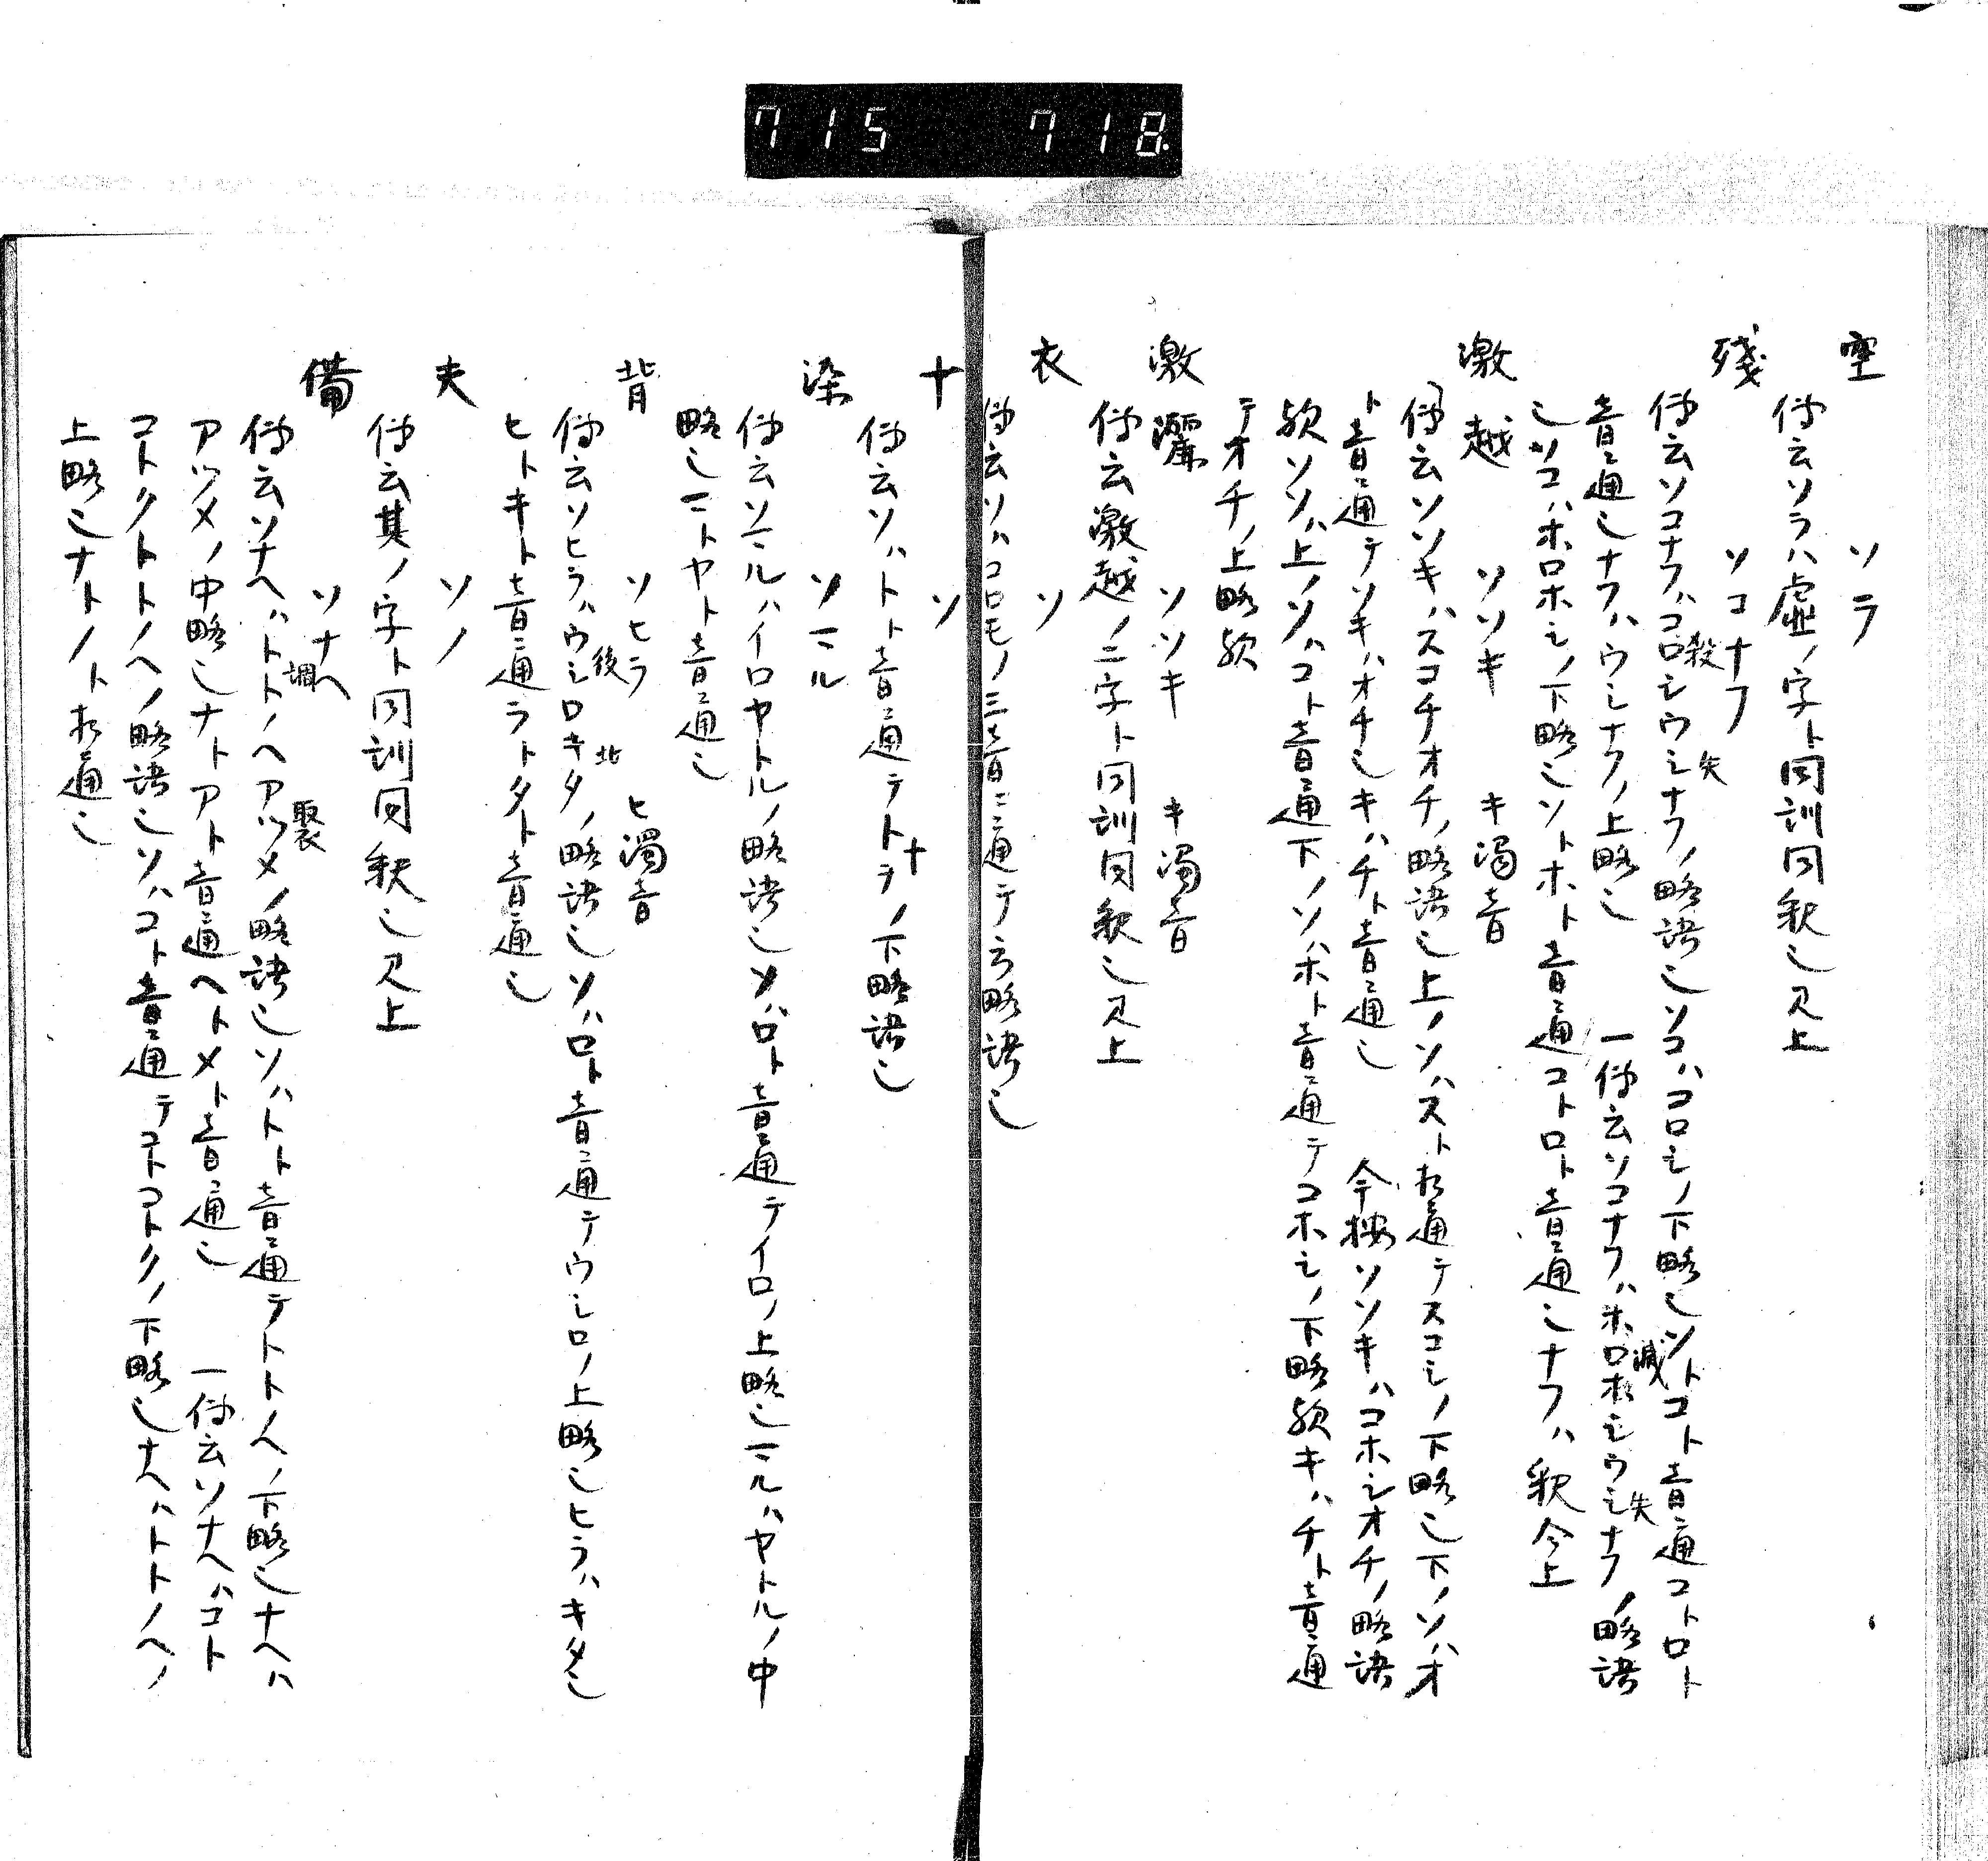 715 718
空 ソラ
仍云ソラハ虚ノ字ト同訓同釈也見上
残 ソコナフ
仍云ソコナフハコロシ殺ウシナフ失ノ略語也ソコハコロシノ下略也ソトコト音通コトロト
音通也ナフハウシナフノ上略也 一仍云ソコナフハホロホシ滅ウシナフ失ノ略語
也ソコハホロホシノ下略也ソトホト音通コトロト音通也ナフハ釈今上
激越 ソソキ キ濁音
仍云ソソキハスコチオチノ略語也上ノソハスト相通テスコシノ下略也下ノソハオ
ト音通テソキハオチ也キハチト音通也 今按ソソキハコホシオチノ略語
歟ソソハ上ノソハコト音通下ノソハホト音通テコホシノ下略歟キハチト音通
テオチノ上略歟
激灑 ソソキ キ濁音
仍云激越ノ二字ト同訓同釈也見上
衣 ソ
仍云ソハコロモノ三音ニ通テ云略語也
十 ソ
仍云ソハトト音通テトヲ十ノ下略語也
染 ソニル
仍云ソニルハイロヤトルノ略語也ソハロト音通テイロノ上略也ニルハヤトルノ中
略也ニトヤト音通也
背 ソヒラ ヒ濁音
仍云ソヒラハウシロ後キタ北ノ略語也ソハロト音通テウシロノ上略也ヒラハキタ也
ヒトキト音通ラトタト音通也
夫 ソノ
仍云其ノ字ト同訓同釈也見上
備 ソナヘ
仍云ソナヘハトトノヘ調アツメ聚ノ略語也ソハトト音通テトトノヘノ下略也ナヘハ
アツメノ中略也ナトアト音通ヘトメト音通也 一仍云ソナヘハコト
コトクトトノヘノ略語也ソハコト音通テコトコトクノ下略也ナヘハトトノヘノ
上略也ナトノト相通也